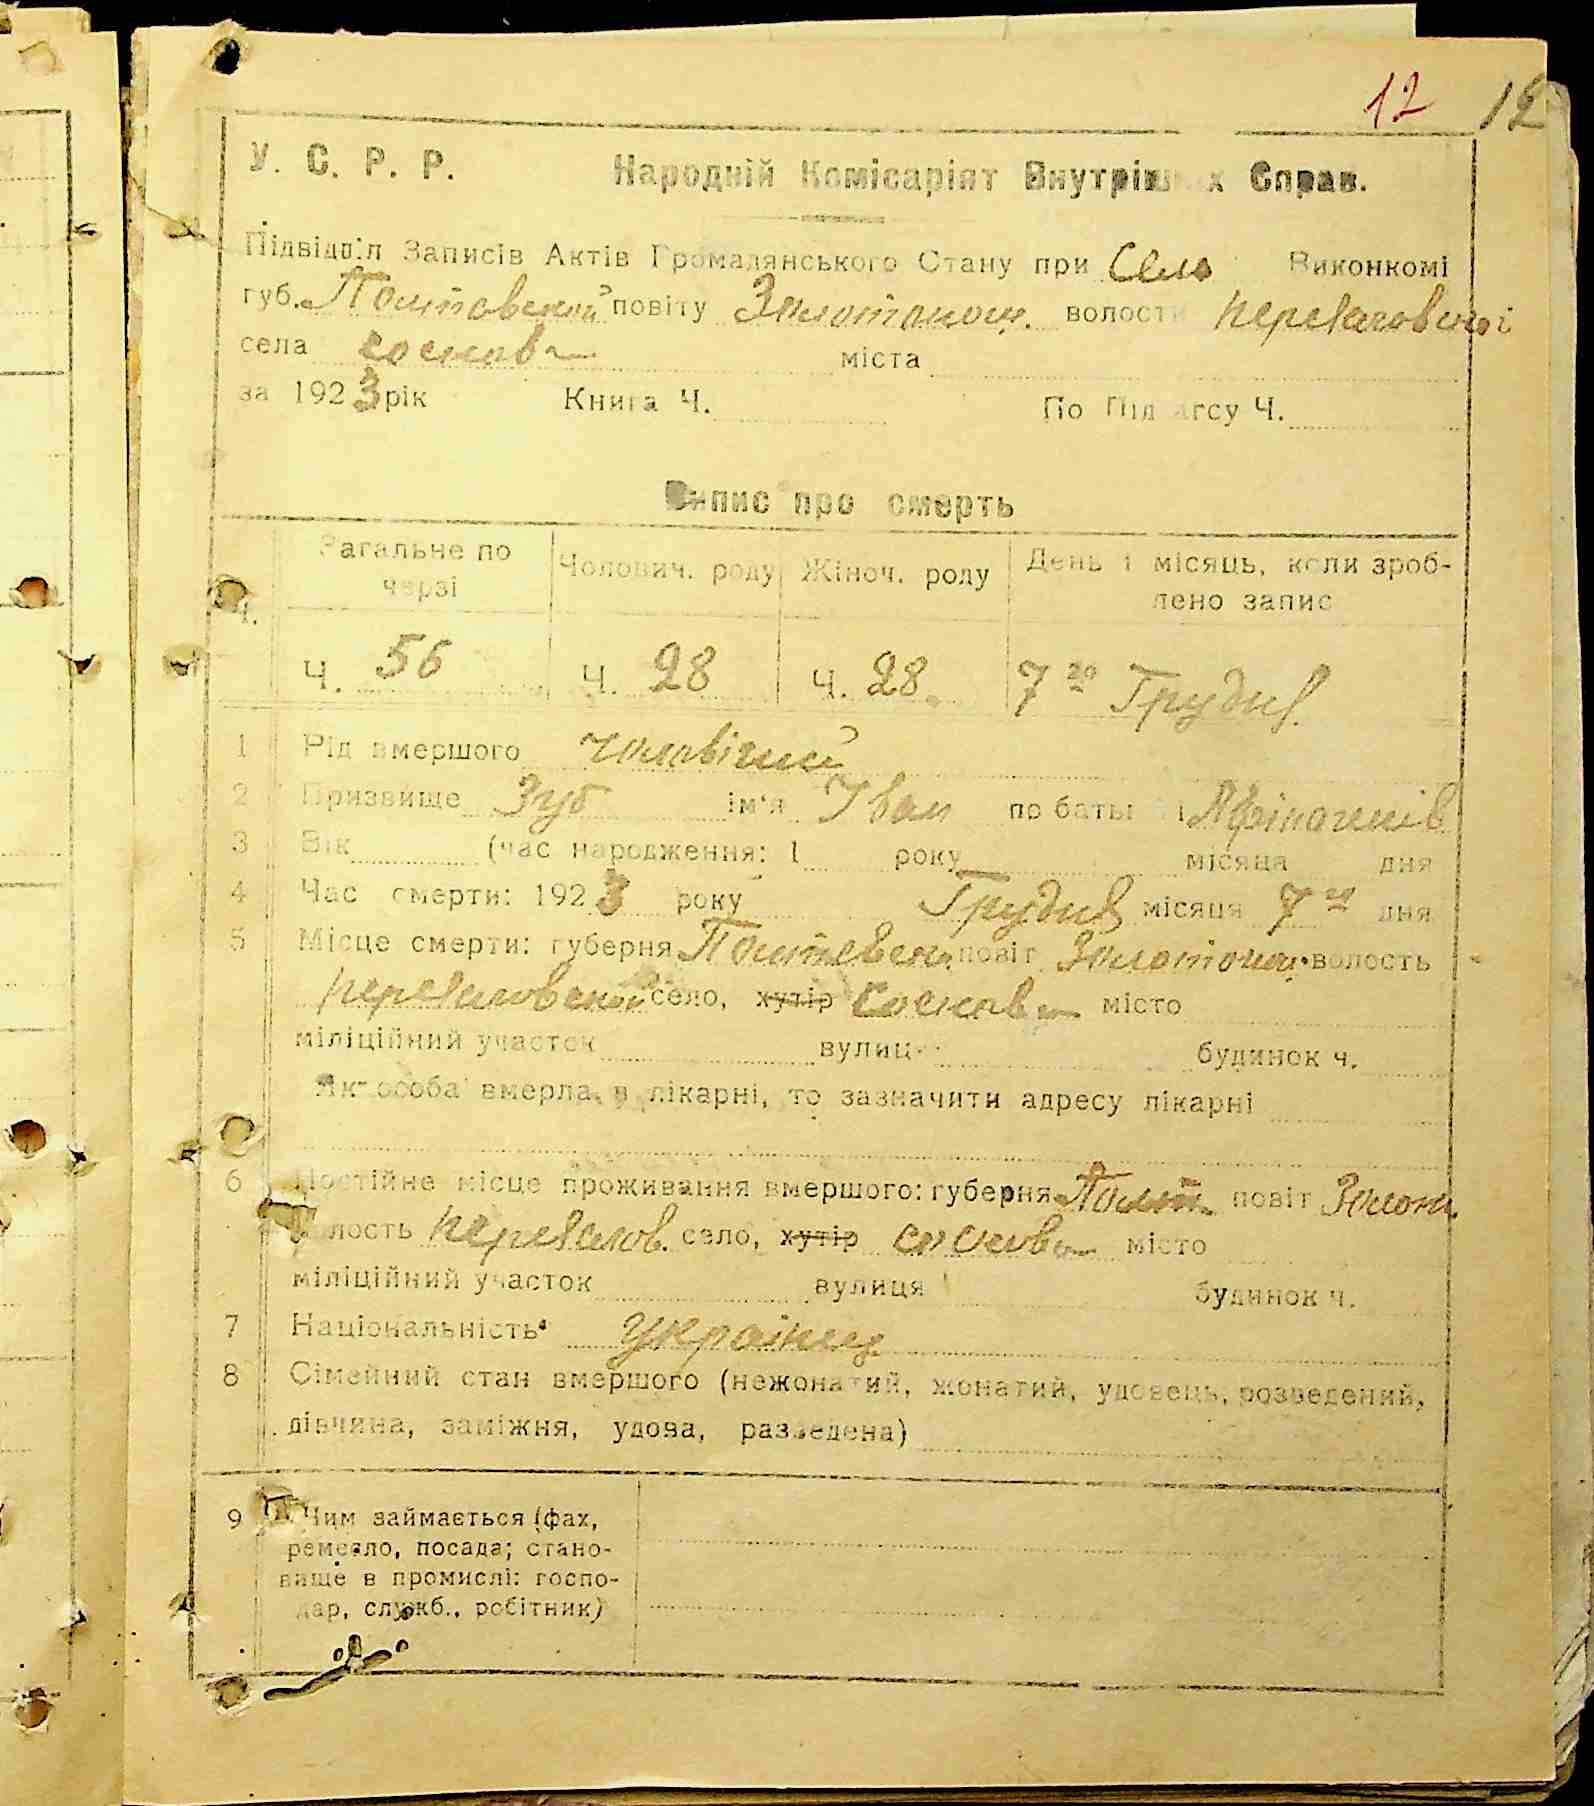 12 12
У. С. Р. Р. Народній Комісаріят Внутрішніх Справ.
Підвідділ Записів Актів Громадянського Стану при Село Виконкомі
губ. Полтавськой повіту Золотонош. волости
села соснов
міста
за 1923 рік Книга Ч. По Підзагсу Ч.
Випис про смерть
Загальне по черзі Чолович. роду Жіноч. роду День і місяць, коли зроблено запис
Ч. 56 Ч. 28 Ч. 28. 7го Грудня
1 Рід вмершого чоловічий
2 Призвище Зуб ім'я Іван по батькові
3 Вік (час народження: 1 року місяца дня
4 Час смерти: 1923 року Грудня місяця 7го дня
5 Місце смерти: губерня повіт Золотонош. волость
село, хутір місто
міліційний участок вулиця будинок ч.
Як особа вмерла в лікарні, то зазначити адресу лікарні
6 Постійне місце проживання вмершого: губерня Полт. повіт Золотн.
волость село, хутір місто
міліційний участок вулиця будинок ч.
7 Національність українец
8 Сімейний стан вмершого (нежонатий, жонатий, удовець, розведений,
дівчина, заміжня, удова, разведена)
9 Чим займається (фах,
ремесло, посада; стано-
вище в промислі: госпо-
дар, служб., робітник)